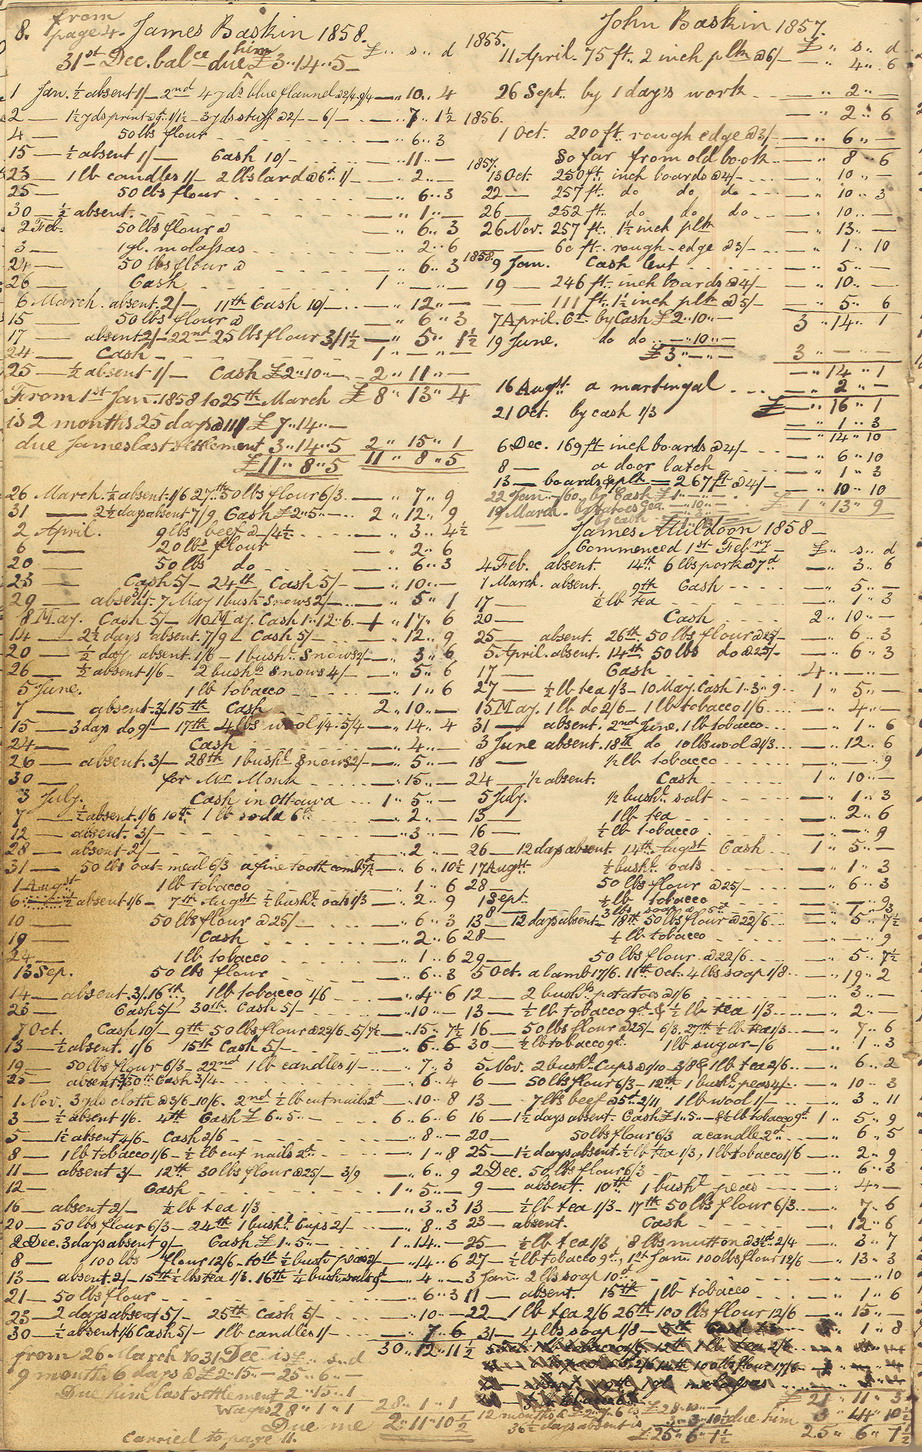 8. from page 4. James Baskin 1858.
£ .. s .. d
31st Dec. balce due him £3..14..5
1 Jan. ½ absent 1/- 2nd 4 yds blue flannel — .. 10 .. 4
2 — 1½ yds print 3 yds stuff @2/- 6/- — .. 7 .. 1½
4 — 50 lbs flour — .. 6 .. 3
15 — ½ absent 1/- Cash 10/- — .. 11 .. —
23 — 1 lb candles 1/- 2 lbs lard @6d 1/- — .. 2 .. —
25 — 50 lbs flour — .. 6 .. 3
30 — ½ absent. — .. 1 .. —
2 Feb. 50 lbs flour @ — .. 6 .. 3
3 — 1 gl. molasses — .. 2 .. 6
24 — 50 lbs flour @ — .. 6 .. 3
26 Cash 1 .. — .. —
6 March. absent. 2/- 11th Cash 10/- — .. 12 .. —
15 — 50 lbs flour @ — .. 6 .. 3
17 absent 2/- 22nd 25 lbs flour 3/1½ — .. 5 .. 1½
24 — Cash 1 .. — .. —
25 — ½ absent 1/- Cash £2..10.. — 2 .. 11 .. —
From 1st Jan. 1858 to 25th March £8 .. 13 .. 4
is 2 months 25 days £7..14..—
due James last Settlement 3..14..5 2 .. 15 .. 1
£11..8..5 11 .. 8 .. 5
26 March. ½ absent. 1/6 27th 50 lbs flour 6/3 — .. 7 .. 9
31 — 2½ days absent 7/9 Cash £2..5.. — 2 .. 12 .. 9
2 April. 9 lbs beef @ 4½ — .. 3 .. 4½
6 — 20 lbs flour — .. 2 .. 6
20 — 50 lbs do — .. 6 .. 3
23 Cash 5/- 24th Cash 5/- — .. 10 .. —
29 — absent 7 May 1 bush. Snows 2/- — .. 5 .. 1
8 May. Cash 5/- 10 May. Cash 1..12..6. 1 .. 17 .. 6
14 — 2½ days absent 7/9 Cash 5/- — .. 12 .. 9
20 — ½ day absent 1/6 - 1 bushl. Snows 2/- — .. 3 .. 6
26 — ½ absent 1/6 - 2 bushls Snows 4/- — .. 5 .. 6
5 June. 1 lb tobacco — .. 1 .. 6
7 — absent 3/ 15th Cash 2 .. 10 .. —
15 — 3 days do 9/- 17th 4 lbs wool 1/4. 5/4 — .. 14 .. 4
24 — Cash — .. 4 .. —
26 — absent. 3/- 28th 1 bushl. Snows 2/- — .. 5 .. —
30 — for Mr Monk — .. 15 .. —
3 July. Cash in Ottawa 1 .. 5 .. —
7 — ½ absent 1/6 10th 1 lb soda 6d — .. 2 .. —
12 — absent. 3/- — .. 3 .. —
28 — absent 2/- — .. 2 .. —
31 — 50 lbs oat-meal 6/3 a fine tooth comb — .. 6 .. 10½
1 Augst 1 lb tobacco — .. 1 .. 6
6 — ½ absent 1/6 - 7th Augst ½ bushl. oats 1/3 — .. 2 .. 9
10 — 50 lbs flour @25/- — .. 6 .. 3
19 — Cash — .. 2 .. 6
24 — 1 lb tobacco — .. 1 .. 6
13 Sep. 50 lbs flour — .. 6 .. 3
14 — absent 3/. 16th, 1 lb tobacco 1/6 — .. 4 .. 6
25 — Cash 5/- 30th Cash 5/- — .. 10 .. —
7 Oct. Cash 10/- 9th 50 lbs flour @22/6 5/7½ — .. 15 .. 7½
13 — ½ absent. 1/6 15th Cash 5/- — .. 6 .. 6
19 — 50 lbs flour 6/3 - 22nd 1 lb candles 1/- — .. 7 .. 3
25 — absent 3/ 30th Cash 3/4 — .. 6 .. 4
1 Nov. 3 yds cloth @3/6 10/6. 2nd ½ lb cut nails 2d — .. 10 .. 8
3 — ½ absent 1/6. 4th Cash £6..5.. — 6 .. 6 .. 6
5 — 1½ absent 4/6 - Cash 3/6 — .. 8 .. —
8 — 1 lb tobacco 1/6 - ½ lb cut nails 2d — .. 1 .. 8
11 — absent 3/ 12th 30 lbs flour @25/- 3/9 — .. 6 .. 9
12 — Cash 1 .. 5 .. —
16 — absent 2/- ½ lb tea 1/3 — .. 3 .. 3
20 — 50 lbs flour 6/3 - 24th 1 bushl. Cups 2/- — .. 8 .. 3
2 Dec. 3 days absent 9/- Cash £1..5.. — 1 .. 14 .. —
8 — 100 lbs flour 12/6 - 10th ½ bush peas 2/- — .. 14 .. 6
13 — absent. 2/- 15th ½ lbs tea 1/3. 16th ½ bush. salt — .. 4 .. —
21 — 50 lbs flour — .. 6 .. 3
23 — 2 days absent 5/- 25th Cash 5/- — .. 10 .. —
30 — ½ absent 1/6 Cash 5/- 1 lb candles 1/- — .. 7 .. 6
from 26. March to 31 Dec. is £ .. s .. d 30 .. 12 .. 11½
9 months 6 days @ £2..15.. — 25 .. 6 .. —
Due him last settlement 2..15..1
Wages 28..1..1 28 .. 1 .. 1
Due me 2 .. 11 .. 10½
Carried to page 11.
John Baskin 1857.
£ .. s .. d
1855.
11 April. 75 ft. 2 inch plk @6/- — .. 4 .. 6
26 Sept. by 1 day's work — .. 2 .. —
— .. 2 .. 6
1856.
1 Oct. 200 ft. rough edge @3/- — .. 6 .. —
So far from old book — .. 8 .. 6
1857.
13 Oct. 250 ft. inch boards @4/- — .. 10 .. —
22 — 257 ft. do do do — .. 10 .. 3
26 252 ft. do do do — .. 10 .. —
26 Nov. 257 ft. 1½ inch plk — .. 13 .. —
— 60 ft. rough-edge @3/- — .. 1 .. 10
1858.
9 Jan. Cash lent — .. 5 .. —
19 — 246 ft. inch boards @4/- — .. 10 .. —
111 ft. 1½ inch plk @5/- — .. 5 .. 6
7 April. Ct by Cash £2..10.. — 3 .. 14 .. 1
19 June. do do .. — 10 .. —
£3 .. — .. — 3 .. — .. —
— .. 14 .. 1
16 Augst. a martingal — .. 2 .. —
£ — .. 16 .. 1
21 Oct. by cash 1/3 — .. 1 .. 3
— .. 14 .. 10
6 Dec. 169 ft inch boards @4/- — .. 6 .. 10
8 — a door latch — .. 1 .. 3
13 — boards & plk = 267 ft @4/- — .. 10 .. 10
22 Jan. /60 by Cash £1..—
£1 .. 13 .. 9
19 March.
by cash
James Muldoon 1858
Commenced 1st Febry £ .. s .. d
4 Feb. absent 14th 6 lbs pork @7d — .. 3 .. 6
1 March. absent. 9th Cash — .. 5 .. —
17 — ½ lb tea — .. 1 .. 3
20 — Cash 2 .. 10 .. —
25 — absent. 26th 50 lbs flour @25/- — .. 6 .. 3
5 April. absent. 14th 50 lbs do @25/- — .. 6 .. 3
17 — Cash 4 .. — .. —
27 — ½ lb tea 1/3 - 10 May. Cash 1..3..9 1 .. 5 .. —
15 May. 1 lb do 2/6 - 1 lb tobacco 1/6 — .. 4 .. —
31 — absent. 2nd June. 1 lb tobacco — .. 1 .. 6
3 June absent. 18th do 10 lbs wool @1/3 — .. 12 .. 6
18 — ½ lb tobacco — .. — .. 9
24 — ½ absent. Cash 1 .. 10 .. —
5 July. ½ bushl. salt — .. 1 .. 3
13 — 1 lb tea — .. 2 .. 6
16 — ½ lb tobacco — .. — .. 9
26 — 12 days absent. 14th Augst Cash 1 .. 5 .. —
17 Augst ½ bushl. oats — .. 1 .. 3
28 50 lbs flour @25/- — .. 6 .. 3
1 Sept. ½ lb tobacco — .. — .. 9
8 3 lbs soap @5d — .. 1 .. 3
13 — 12 days absent 18th 50 lbs flour @22/6 — .. 5 .. 7½
28 — ½ lb tobacco — .. — .. 9
29 — 50 lbs flour @22/6 — .. 5 .. 7½
5 Oct. a lamb 17/6. 11th Oct. 4 lbs soap 1/8 — .. 19 .. 2
12 — 2 bushls potatoes @1/6 — .. 3 .. —
13 — ½ lb tobacco 9d. & ½ lb tea 1/3 — .. 2 .. —
16 — 50 lbs flour @25/- 6/3. 27th ½ lb tea 1/3 — .. 7 .. 6
30 — ½ lb tobacco 9d. 1 lb sugar -/6 — .. 1 .. 3
5 Nov. 2 bushl. Cups @1/10 - 3/8 & 1 lb tea 2/6 — .. 6 .. 2
6 — 50 lbs flour 6/3 - 12th 1 bushl. peas 4/- — .. 10 .. 3
13 — 7 lbs beef @5d 2/11. 1 lb wool 1/- — .. 3 .. 11
16 — 1½ days absent Cash £1..5.. — & ½ lb tobacco 9d 1 .. 5 .. 9
20 — 50 lbs flour 6/3 a candle 2d — .. 6 .. 5
25 — 1½ days absent. ½ lb tea 1/3, 1 lb tobacco 1/6 — .. 2 .. 9
2 Dec. 50 lbs flour 6/3 — .. 6 .. 3
9 — absent. 10th 1 bushl. peas — .. 4 .. —
13 — ½ lb tea 1/3 - 17th 50 lbs flour 6/3 — .. 7 .. 6
23 — absent. Cash — .. 12 .. 6
25 — ½ lb tea 1/3 8 lbs mutton @3½d 2/4 — .. 3 .. 7
27 — ½ lb tobacco 9d, 1st Jan. 100 lbs flour 12/6 — .. 13 .. 3
3 Jan. 2 lbs soap 10d — .. — .. 10
11 — absent 15th 1 lb tobacco — .. 1 .. 6
22 — 1 lb tea 2/6 26th 100 lbs flour 12/6 — .. 15 .. —
31 — 4 lbs soap 1/8 — .. 1 .. 8
£21 .. 11 .. 3
12 months £28..10..
36½ days absent is 3..3..10½ due him 3 .. 14 .. 10½
£25..6..1½ 25 .. 6 .. 1½